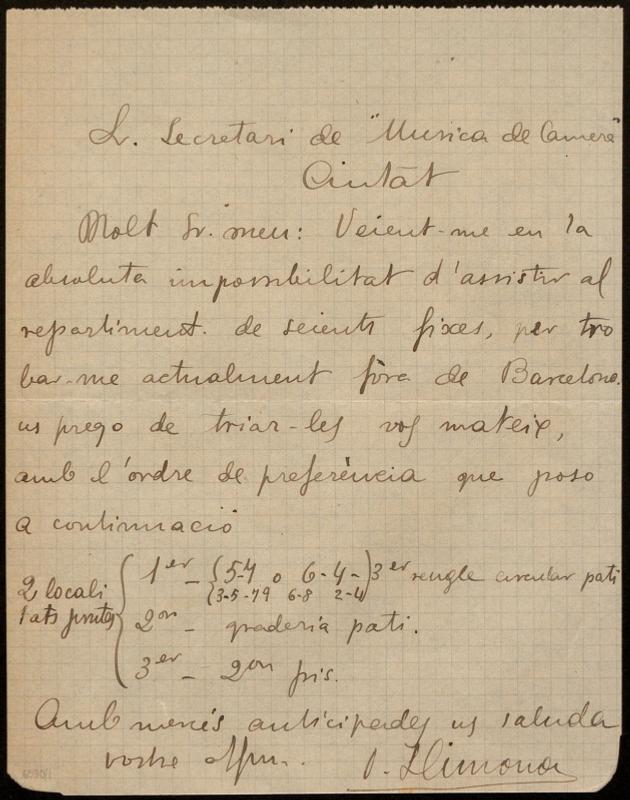 Sr. Secretari de "Musica de Camera"
Ciutàt
Molt Sr. meu: Veient-me en la
absoluta impossibilitat d'assistir al
repartiment. de seients fixes, per tro
bar-me actualment fòra de Barcelona.
us prego de triar-les vos mateix,
amb l'ordre de preferència que poso
a continuació
2 locali
tats juntes
1er - (5-7 o 6-4-) 3er rengle circular pati
(3-5-79 6-8 2-4)
2on - graderia pati.
3er - 2on pis.
Amb mercés anticipades us saluda
vostre affm.. J. Llimona